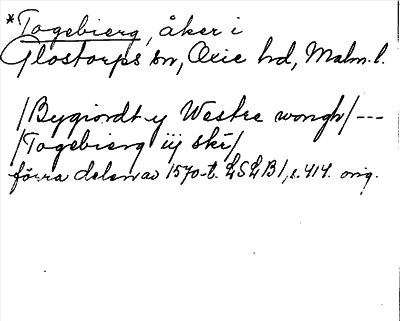 *Togebierg, åker i
Glostorps sn, Oxie hd, Malm. l.
/Bygiordt-y Westre wongh/---
/Togebierg iij skr/
förra delen av 1570-t. LSLB1, s. 414. orig.